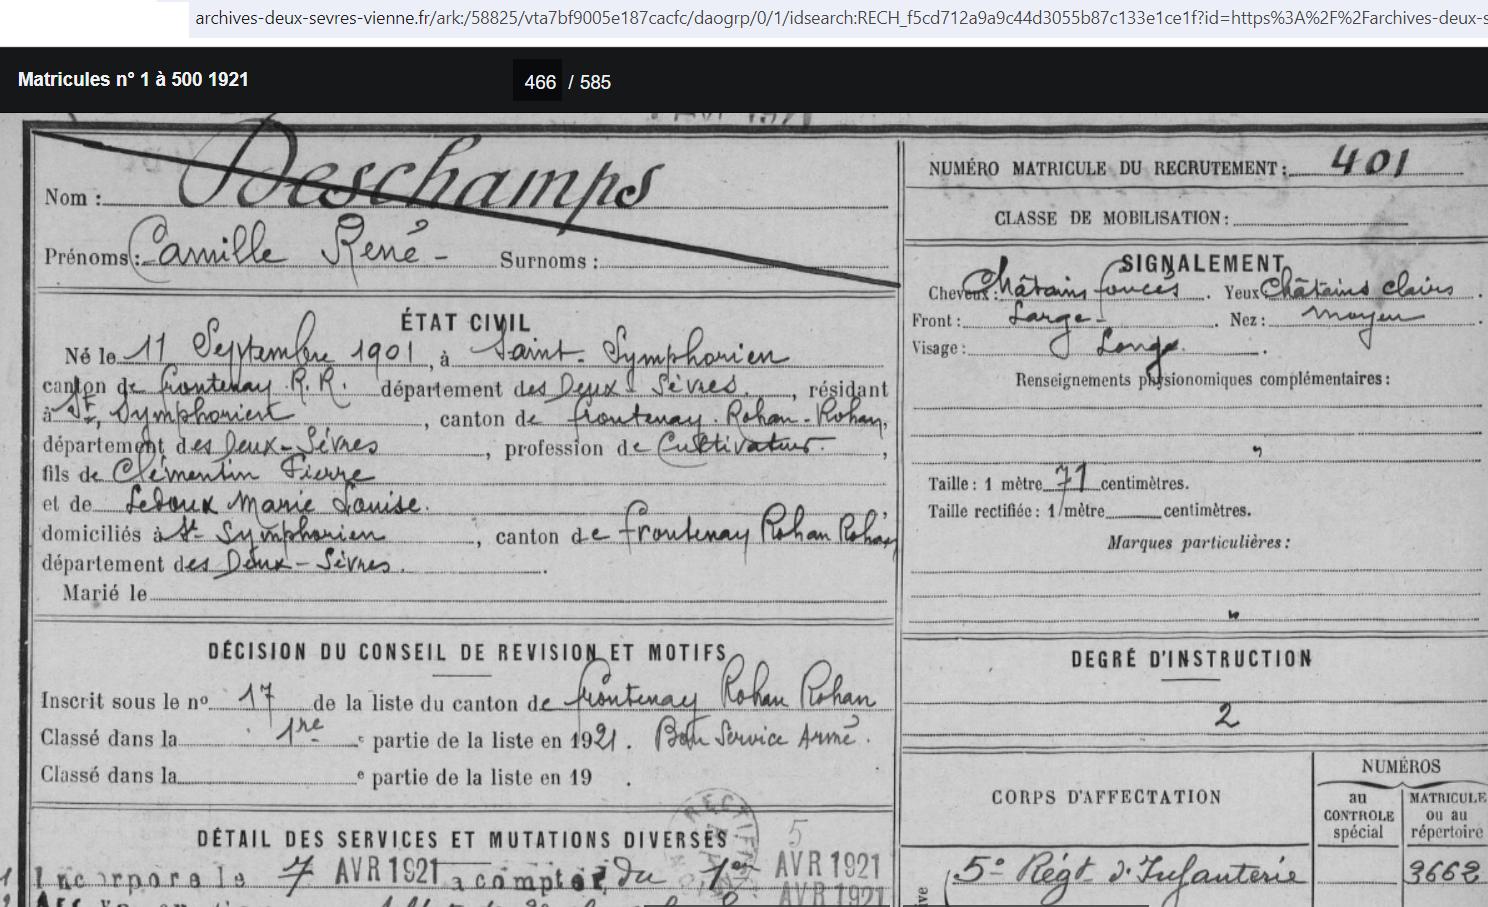 archives-deux-sevres-vienne.fr/ark:/58825/vta7bf9005e187cacfc/daogrp/0/1/idsearch:RECH_f5cd712a9a9c44d3055b87c133e1ce1f?id=https%3A%2F%2Farchives-deux-s
Matricules n° 1 à 500 1921
466 / 585
Nom : Deschamps
Prénoms : Camille René - Surnoms :
ÉTAT CIVIL
Né le 11 Septembre 1901, à Saint-Symphorien
canton de Frontenay R.R. département des Deux-Sèvres, résidant
à St Symphorien, canton de Frontenay-Rohan-Rohan,
département des Deux-Sèvres, profession de Cultivateur,
fils de Clémentin Pierre
et de Ledoux Marie Louise.
domiciliés à St-Symphorien, canton de Frontenay Rohan Rohan
département des Deux-Sèvres.
Marié le
DÉCISION DU CONSEIL DE REVISION ET MOTIFS
Inscrit sous le no 17 de la liste du canton de Frontenay Rohan Rohan
Classé dans la 1re e partie de la liste en 1921. Bon Service Armé.
Classé dans la e partie de la liste en 19 .
DÉTAIL DES SERVICES ET MUTATIONS DIVERSES
5
Incorporé le 7 AVR 1921 à compter du 1er AVR 1921
AVR 1921
NUMÉRO MATRICULE DU RECRUTEMENT : 401
CLASSE DE MOBILISATION :
SIGNALEMENT
Cheveux : Châtains foncés. Yeux Châtains clairs.
Front : Large. Nez : moyen.
Visage : Long.
Renseignements physionomiques complémentaires :
Taille : 1 mètre 71 centimètres.
Taille rectifiée : 1 mètre centimètres.
Marques particulières :
DEGRÉ D'INSTRUCTION
2
CORPS D'AFFECTATION
NUMÉROS
au CONTROLE spécial
MATRICULE ou au répertoire
5e Régt d'Infanterie
3662